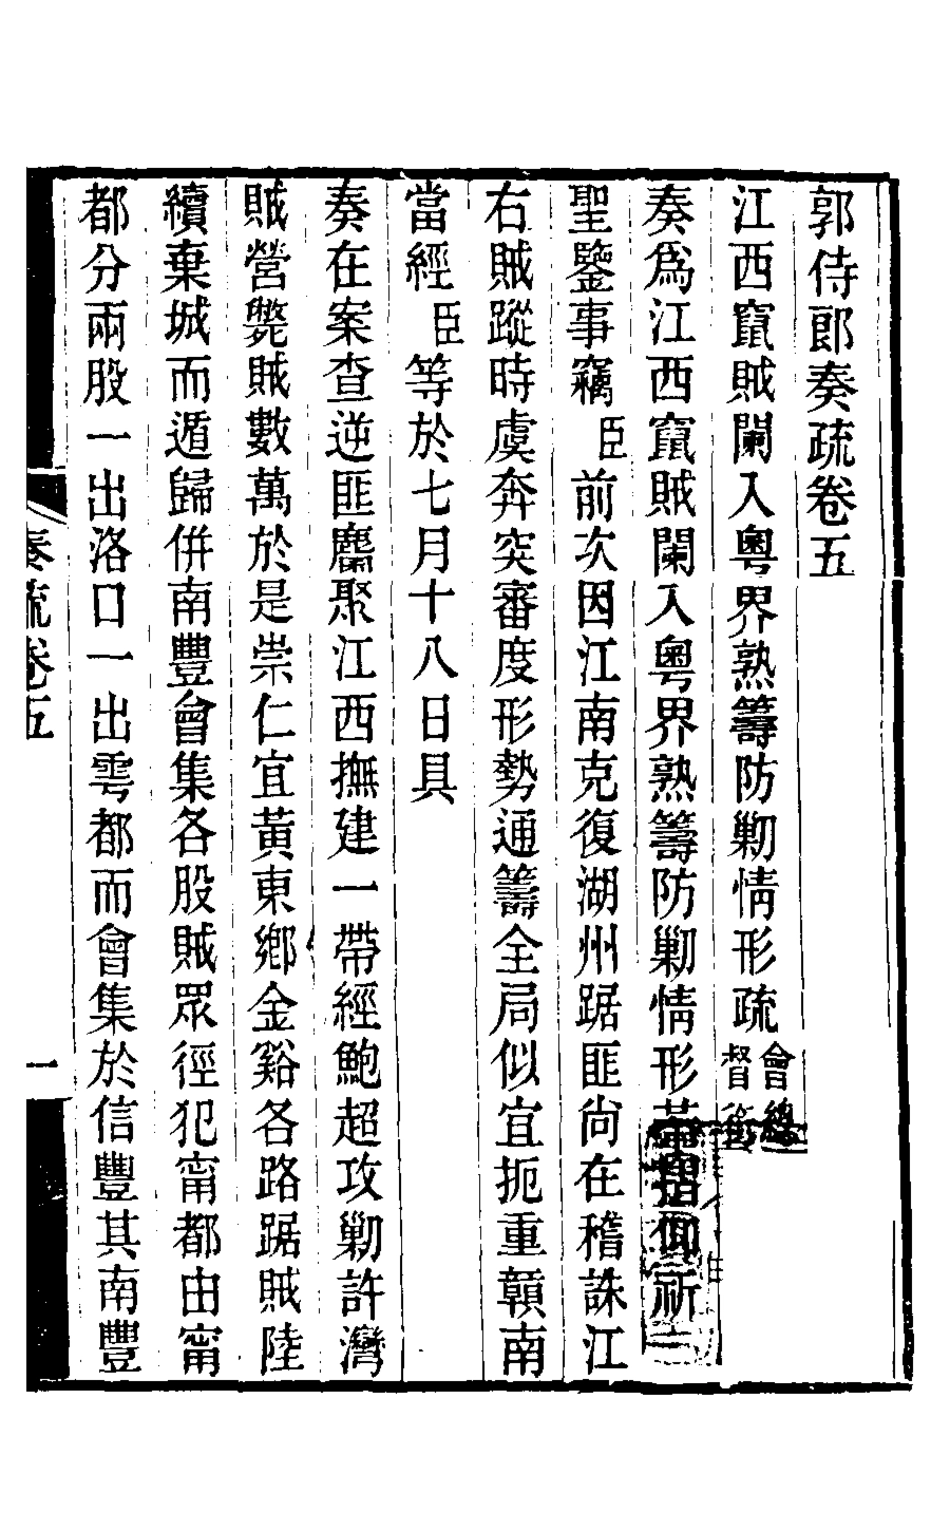 郭侍郎奏疏卷五
江西竄賊闌入粵界熟籌防勦情形疏會總督銜
奏爲江西竄賊闌入粵界熟籌防勦情形恭摺仰祈
聖鑒事竊臣前次因江南克復湖州踞匪尚在稽誅江
右賊蹤時虞奔突審度形勢通籌全局似宜扼重贛南
當經臣等於七月十八日具
奏在案查逆匪麕聚江西撫建一帶經鮑超攻勦許灣
賊營斃賊數萬於是崇仁宜黃東鄉金谿各路踞賊陸
續棄城而遁歸併南豐會集各股賊眾徑犯甯都由甯
都分兩股一出洛口一出雩都而會集於信豐其南豐
奏疏卷五
一